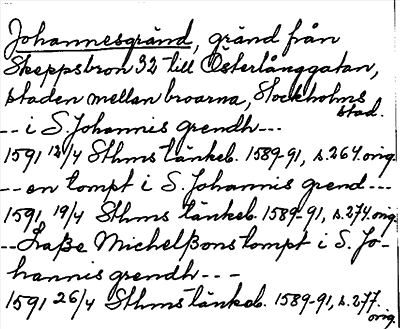 Johannesgränd, gränd från
Skeppsbron 32 till Österlånggatan,
staden mellan broarna, Stockholms
stad.
-- i S. Johannis grendh ---
1591 12/4 Sthms tänkeb. 1589-91, s. 264. orig.
-- en tompt i S. Johannis grend ---
1591, 19/4 Sthms tänkeb. 1589-91, s. 274. orig.
-- Laße Michelßons tompt i S. Jo-
hannis grendh -- -
1591 26/4 Sthms tänkeb. 1589-91, s. 277.
orig.